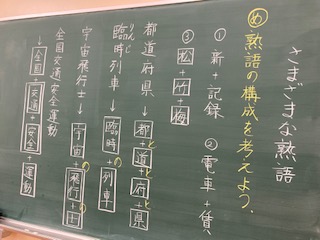 さまざまな熟語
め 熟語の構成を考えよう。
① 新+記録 ② 電車+賃
③ 松+竹+梅
都道府県
→都と+道と+府と+県
りんじ
臨時列車
→臨時の+列車
宇宙飛行士
→宇宙の+飛行の+士
全国交通安全運動
→全国+交通+安全+運動